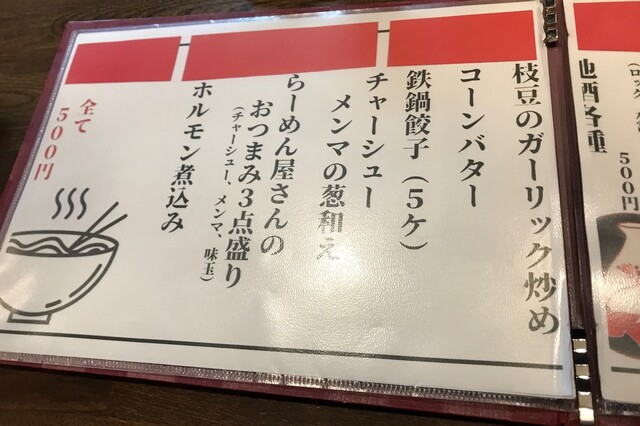 枝豆のガーリック炒め
コーンバター
鉄鍋餃子（5ケ）
チャーシュー
メンマの葱和え
らーめん屋さんの
おつまみ3点盛り
（チャーシュー、メンマ、味玉）
ホルモン煮込み
全て
500円
地酒各種
500円